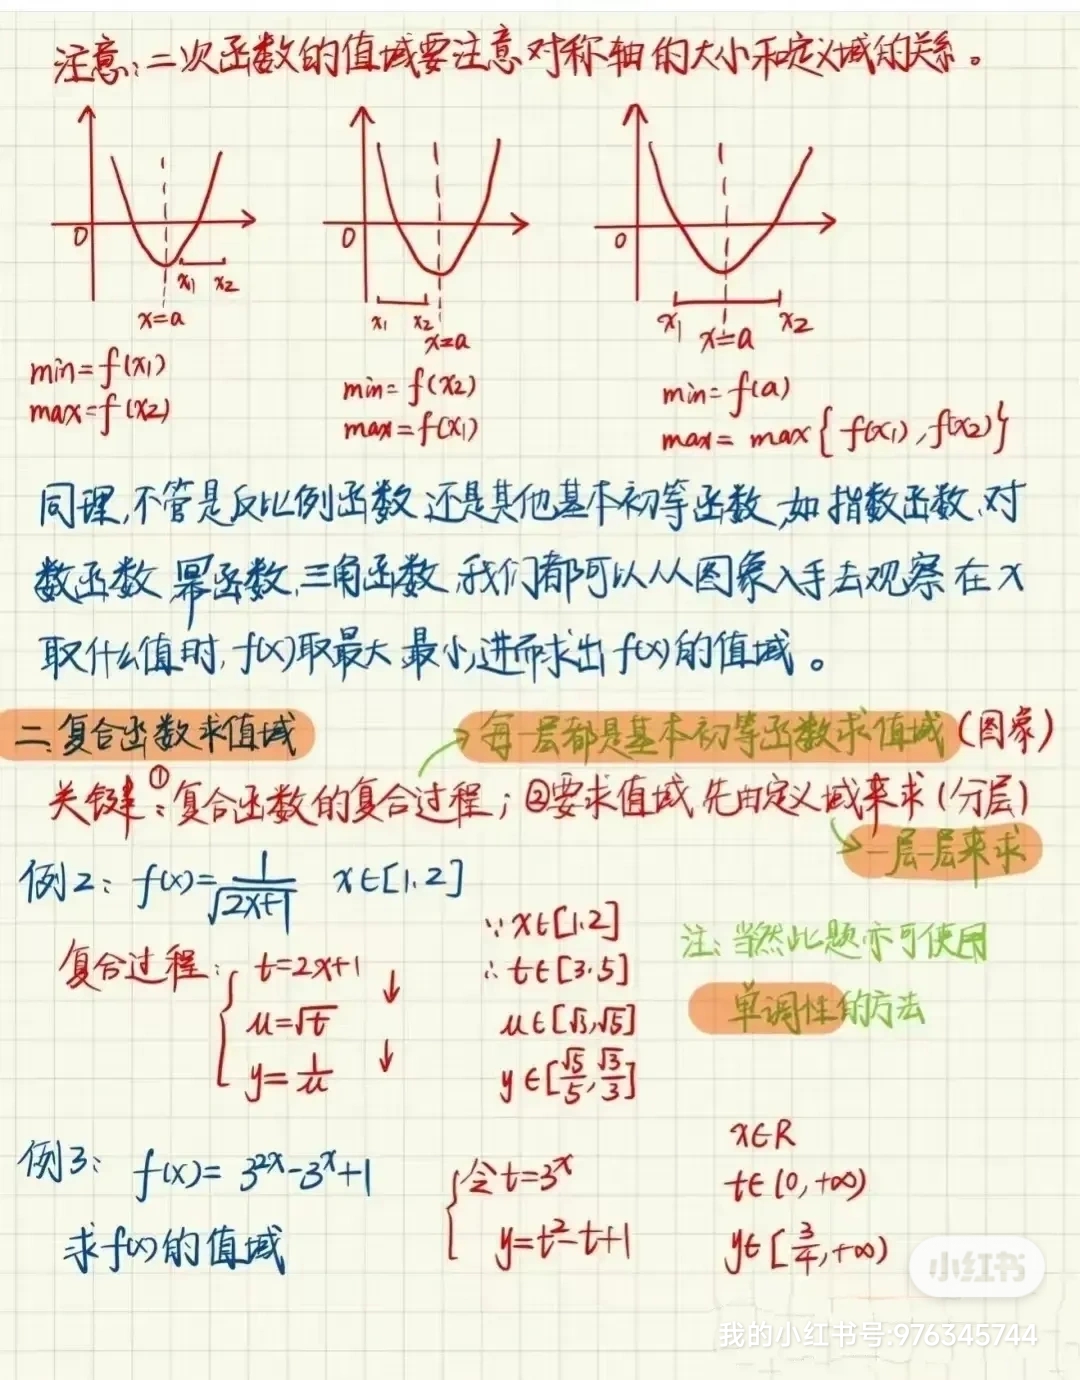 注意:二次函数的值域要注意对称轴的大小和定义域的关系。
0 x₁ x₂ x=a
0 x₁ x₂ x=a
0 x₁ x=a x₂
min=f(x₁)
max=f(x₂)
min=f(x₂)
max=f(x₁)
min=f(a)
max=max{f(x₁),f(x₂)}
同理,不管是反比例函数还是其他基本初等函数,如指数函数、对
数函数、幂函数、三角函数,我们都可以从图象入手,去观察在x
取什么值时,f(x)取最大、最小,进而求出f(x)的值域。
二、复合函数求值域
每一层都是基本初等函数求值域(图象)
关键:①复合函数的复合过程;②要求值域,先由定义域来求(分层)
一层一层来求
例2: f(x)=1/√(2x+1) x∈[1,2]
复合过程:
t=2x+1
u=√t
y=1/u
∵x∈[1,2]
∴t∈[3,5]
u∈[√3,√5]
y∈[√5/5,√3/3]
注:当然此题亦可使用
单调性的方法
例3: f(x)=3²ˣ-3ˣ+1
求f(x)的值域
令t=3ˣ
y=t²-t+1
x∈R
t∈(0,+∞)
y∈[3/4,+∞)
小红书
我的小红书号:976345744